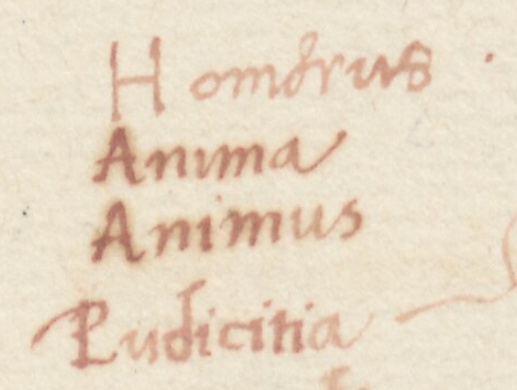 Homerus
Anima
Animus
Pudicitia